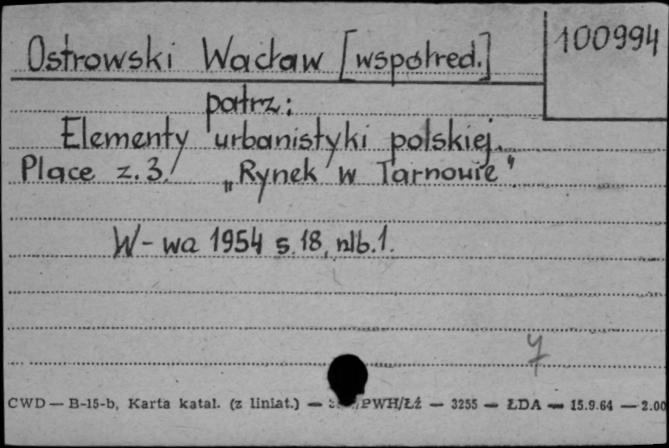 100994
Ostrowski Wacław [współred.]
patrz:
Elementy urbanistyki polskiej.
Place z. 3. „Rynek w Tarnowie".
W-wa 1954 s. 18, nlb. 1.
7
CWD — B-15-b, Karta katal. (z liniat.) — /PWH/Łź — 3255 — ŁDA — 15.9.64 — 2.00